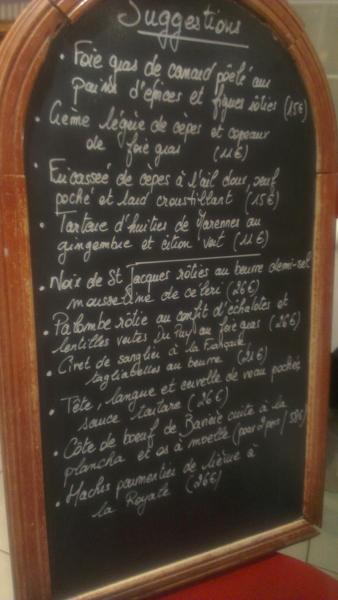 Suggestions
• Foie gras de canard poêlé au
pain d'épices et figues rôties (15€)
• Crème légère de cèpes et copeaux
de foie gras (11€)
• Fricassée de cèpes à l'ail doux, oeuf
poché et lard croustillant (15€)
• Tartare d'huîtres de Varennes au
gingembre et citron vert (11€)
• Noix de St Jacques rôties au beurre demi-sel
mousseline de céleri (26€)
• Palombe rôtie au confit d'échalotes et
lentilles vertes Du Puy au foie gras (26€)
• Civet de sanglier à la Française
tagliatelles au beurre (21€)
• Tête, langue et cervelle de veau pochés,
sauce tartare (26€)
• Côte de boeuf de Bavière cuite à la
plancha et os à moelle (pour 2 pers / 58€)
• Hachis parmentier de lièvre à
la Royale (26€)